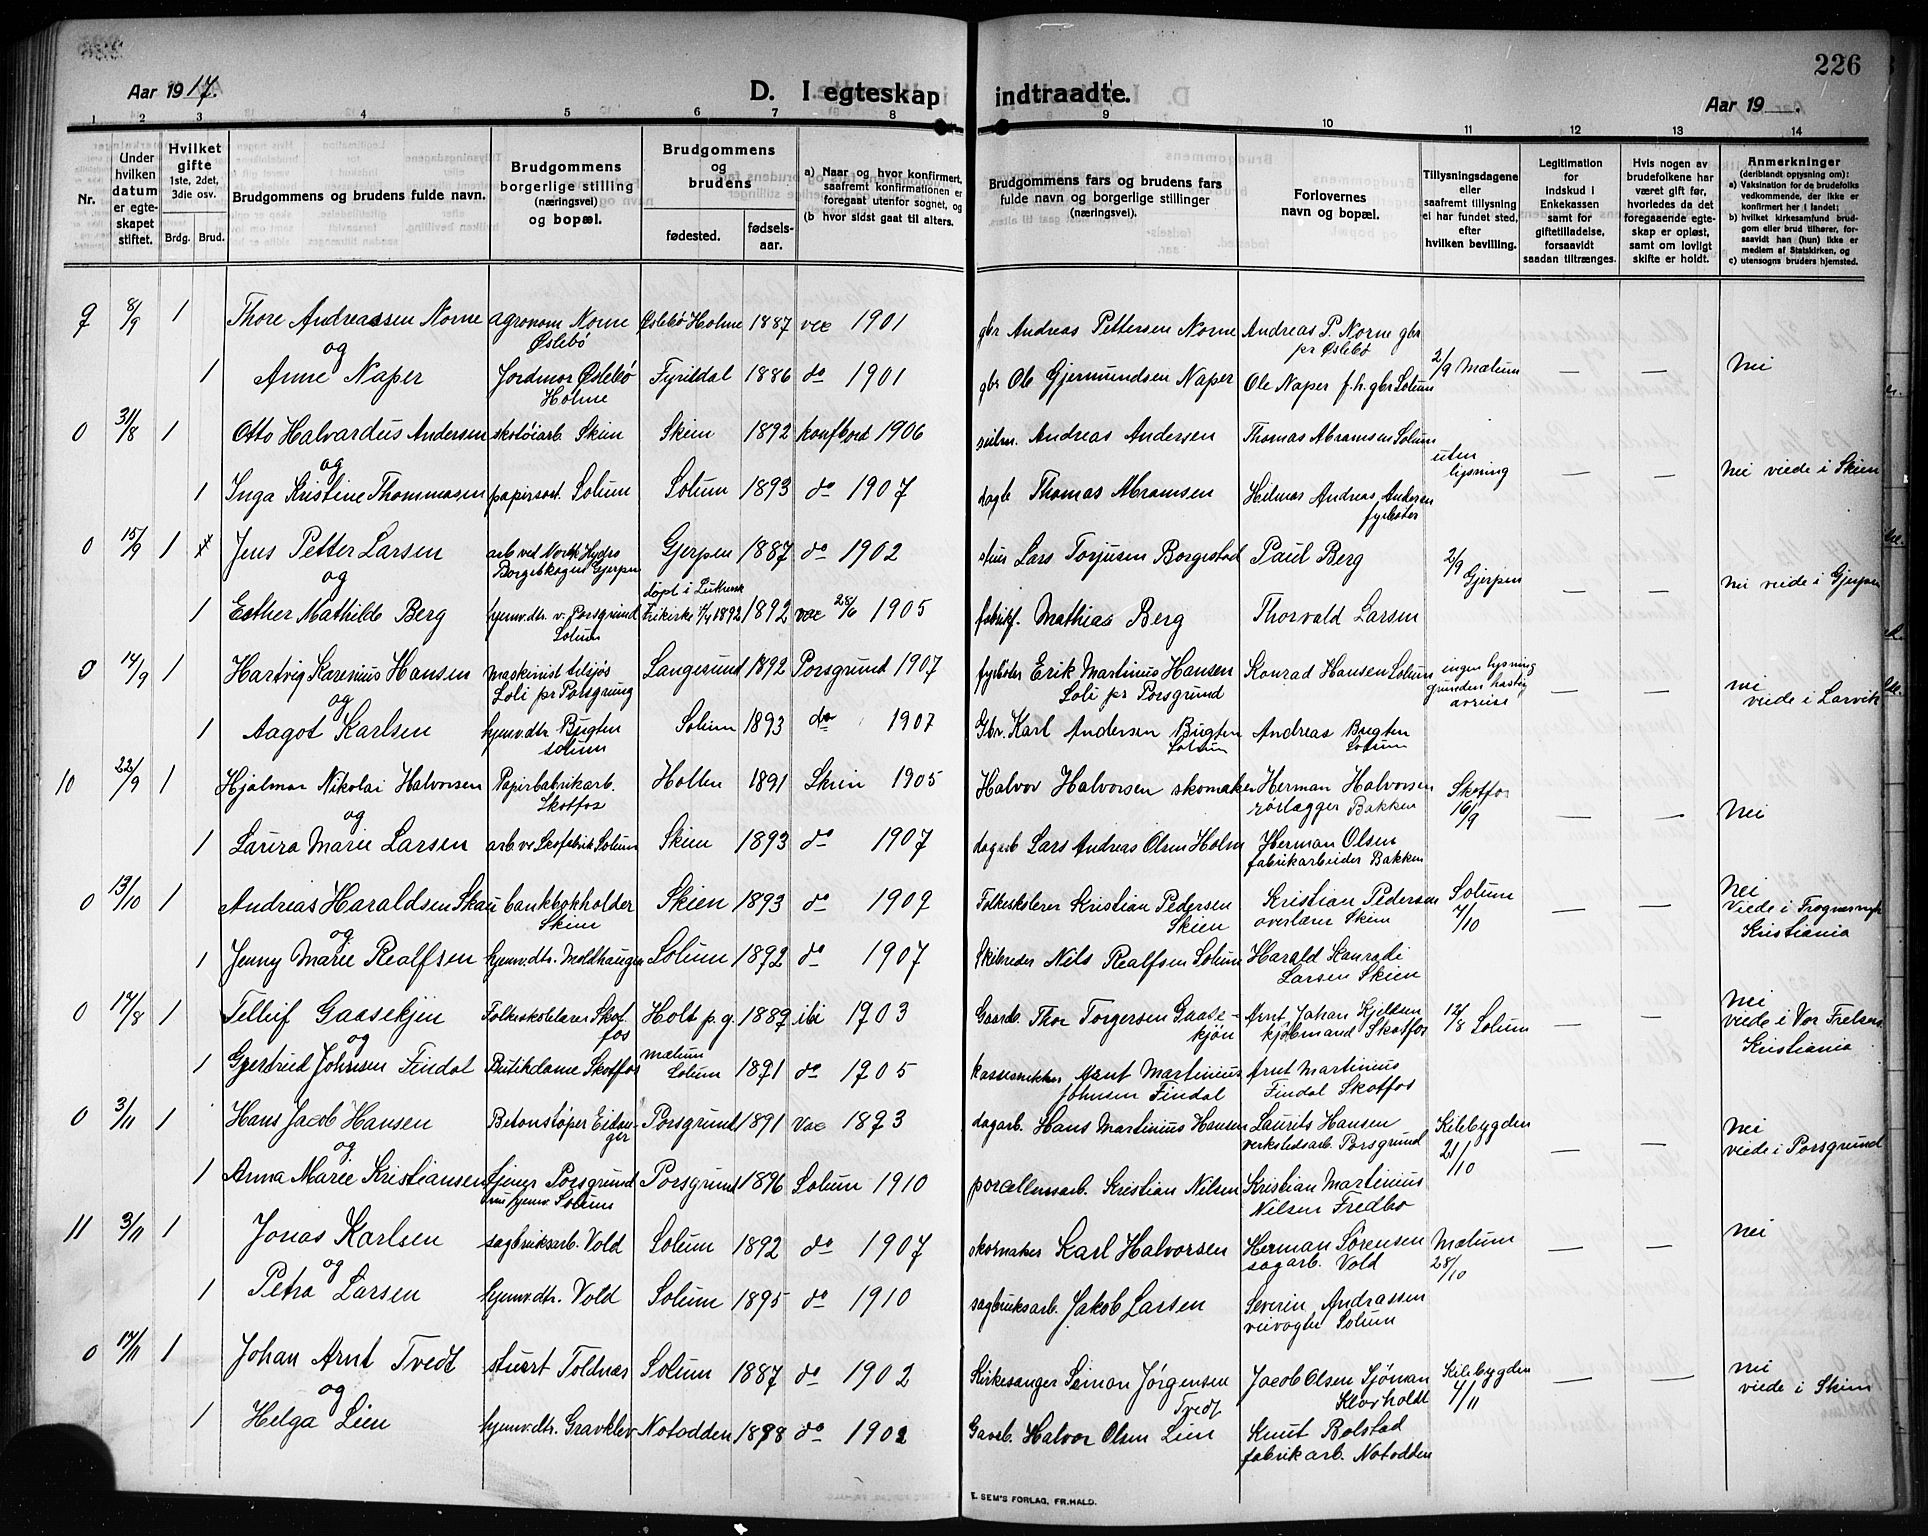 226
Aar 1917.
D. I egteskap indtraadte.
Aar 19 .
1 2 3 4 5 6 7 8 9 10 11 12 13 14
Nr.
Under hvilken datum er egteskapet stiftet.
Hvilket gifte 1ste, 2det, 3die osv.
Brdg. Brud.
Brudgommens og brudens fulde navn.
Brudgommens borgerlige stilling (næringsvei) og bopæl.
Brudgommens og brudens
fødested. fødselsaar.
a) Naar og hvor konfirmert, saafremt konfirmationen er foregaat utenfor sognet, og
(b hvor sidst gaat til alters.
Brudgommens fars og brudens fars fulde navn og borgerlige stillinger (næringsvei).
Forlovernes navn og bopæl.
Tillysningsdagene eller saafremt tillysning ei har fundet sted, efter hvilken bevilling.
Legitimation for indskud i Enkekassen samt for giftetilladelse, forsaavidt saadan tiltrænges.
Hvis nogen av brudefolkene har været gift før, hvorledes da det foregaaende egteskap er opløst, samt om lovligt skifte er holdt.
Anmerkninger (deriblandt optysning om:
a) Vaksination for de brudefolks vedkommende, der ikke er konfirmert her i landet;
b) hvilket kirkesamfund brudgom eller brud tilhører, forsaavidt han (hun) ikke er medlem af Statskirken, og
c) utensogns bruders hjemsted.
9 8/9 1 Thore Andreassen Norne agronom Norne Øslebø Øslebø Holme 1887 vac 1901 gbr Andreas Pettersen Norne Andreas P. Norne gbr pr Øslebø
og
1 Anne Naper Jordmor Øslebø Holme Fyrisdal 1886 do 1901 gbr Ole Gjermundsen Naper Ole Naper f.h.gbr Solum 2/9 Mælum — — Nei
0 31/8 1 Otto Halvardus Andersen skotøiarb. Skien Skien 1892 1906 Andreas Andersen Thomas Abramsen Solum uten lysning
og
1 Inga Kristine Thommasen papirsort. Solum Solum 1893 do 1907 dagb Thomas Abramsen Hilmar Andreas Andersen fyrbøter — — Nei viede i Skien
0 15/9 1 Jens Petter Larsen arb ved Norsk Hydro Borgeskogen Gjerpen Gjerpen 1887 do 1902 Lars Torjusen Borgestad Paul Berg 2/9 Gjerpen
og
1 Esther Mathilde Berg hjemv.dtr. v. Porsgrund Solum døpt i Luthersk Frikirke 1892 1892 vac 25/6 1905 fabrikf. Mathias Berg Thorvald Larsen — — Nei viede i Gjerpen
0 14/9 1 Hartvig Karenius Hansen maskinist tilsjøs Soli pr Porsgrund Langesund 1892 Porsgrund 1907 fyrbøter Erik Martinus Hansen Soli pr Porsgrund Konrad Hansen Solum ingen lysning grunden hastig avreise
og
1 Aagot Karlsen hjemv.dtr Bugten solum Solum 1893 do 1907 Gbr. Karl Andersen Bugten Solum Andreas Bugten Solum — — nei viede i Larvik
10 22/9 1 Hjalmar Nikolai Halvorsen Papirfabrikarb. Skotfos Holten 1891 Skien 1905 Halvor Halvorsen skomaker Herman Halvorsen rørlægger Bakken Skotfos 16/9
og
1 Laura Marie Larsen arb ve Skofabrik Solum Skien 1893 do 1907 dagarb Lars Andreas Olsen Holm Herman Olsen fabrikarbeider Bakken — — Nei
0 13/10 1 Andreas Haraldsen Skau bankbokholder Skien Skien 1893 do 1909 Folkeskolelærer Kristian Pedersen Skien Kristian Pedersen overlærer Skien Solum 7/10
og
1 Jenny Marie Realfsen hjemv.dtr. Moldhaugen Solum 1892 do 1907 Skibreder Nils Realfsen Solum Harald Konradi Larsen Skien — — Nei Viede i Frogner Kristiania
0 17/8 1 Tellif Gaasekjen Folkeskolelærer Skotfos Holt p.g. 1889 ibi 1903 Gaardb. Thor Torgersen Gaasekjøn Arnt Johan Kjeldsen kjøbmand Skotfos 12/8 Solum
og
1 Gjertrud Johnsen Findal Butikdame Skotfos Mælum Solum 1891 do 1905 Arnt Martinius Johnsen Findal Arnt Martinius Findal Skotfos — — Nei viede i Vor Frelsers Kristiania
0 3/11 1 Hans Jacob Hansen Betonstøper Eidanger Porsgrund 1891 Vac 1893 dagarb. Hans Martinius Hansen Laurits Hansen verkstedsarb. Porsgrund Kilebygden 21/10
og
1 Anna Marie Kristiansen tjener Porsgrund hjemv Solum Porsgrund 1896 Solum 1910 porcellensarb. Kristian Nilsen Kristian Martinius Nilsen Fredbo — — Nei viede i Porsgrund
11 3/11 1 Jonas Karlsen sagbruksarb. Vold Solum 1892 do 1907 skomaker Karl Halvorsen Herman Sørensen sagarb. Vold Mælum 28/10
og
1 Petra Larsen hjemv.dtr. Vold Solum 1895 do 1910 sagbruksarb. Jakob Larsen Severin Andrassen veivogter Solum — — nei
0 17/11 1 Johan Arnt Tvedt stuert Toldnæs Solum 1887 do 1902 Kirkesanger Simon Jørgensen Tvedt Jacob Olsen Sjöman Klovholdt Kilebygden 4/11
og
1 Helga Lien hjemv.dtr. Gravklev Notodden 1888 do 1902 Gaarb. Halvor Olsen Lien Knut Bolstad fabrikarb. Notodden — — nei viede i Skien
E. SEM'S FORLAG, FR.HALD.